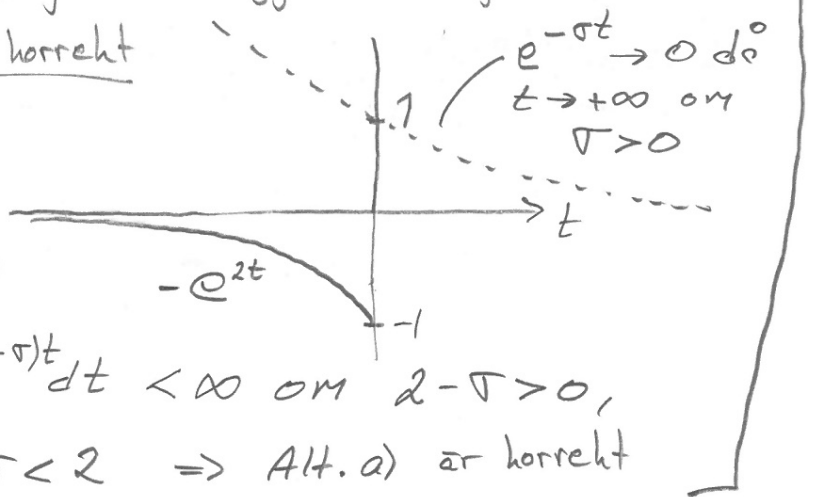 korrekt
e^{-σt} → 0 då
t → +∞ om
σ > 0
1
t
-e^{2t}
-1
-σ)t dt < ∞ om 2-σ > 0,
< 2 ⇒ Alt. a) är korrekt